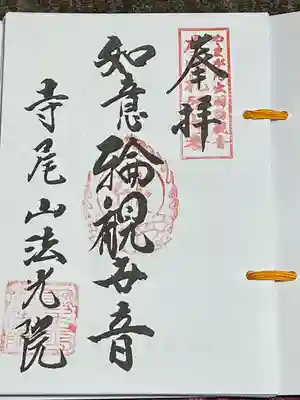 奉拝
如意輪観世音
寺尾山法光院